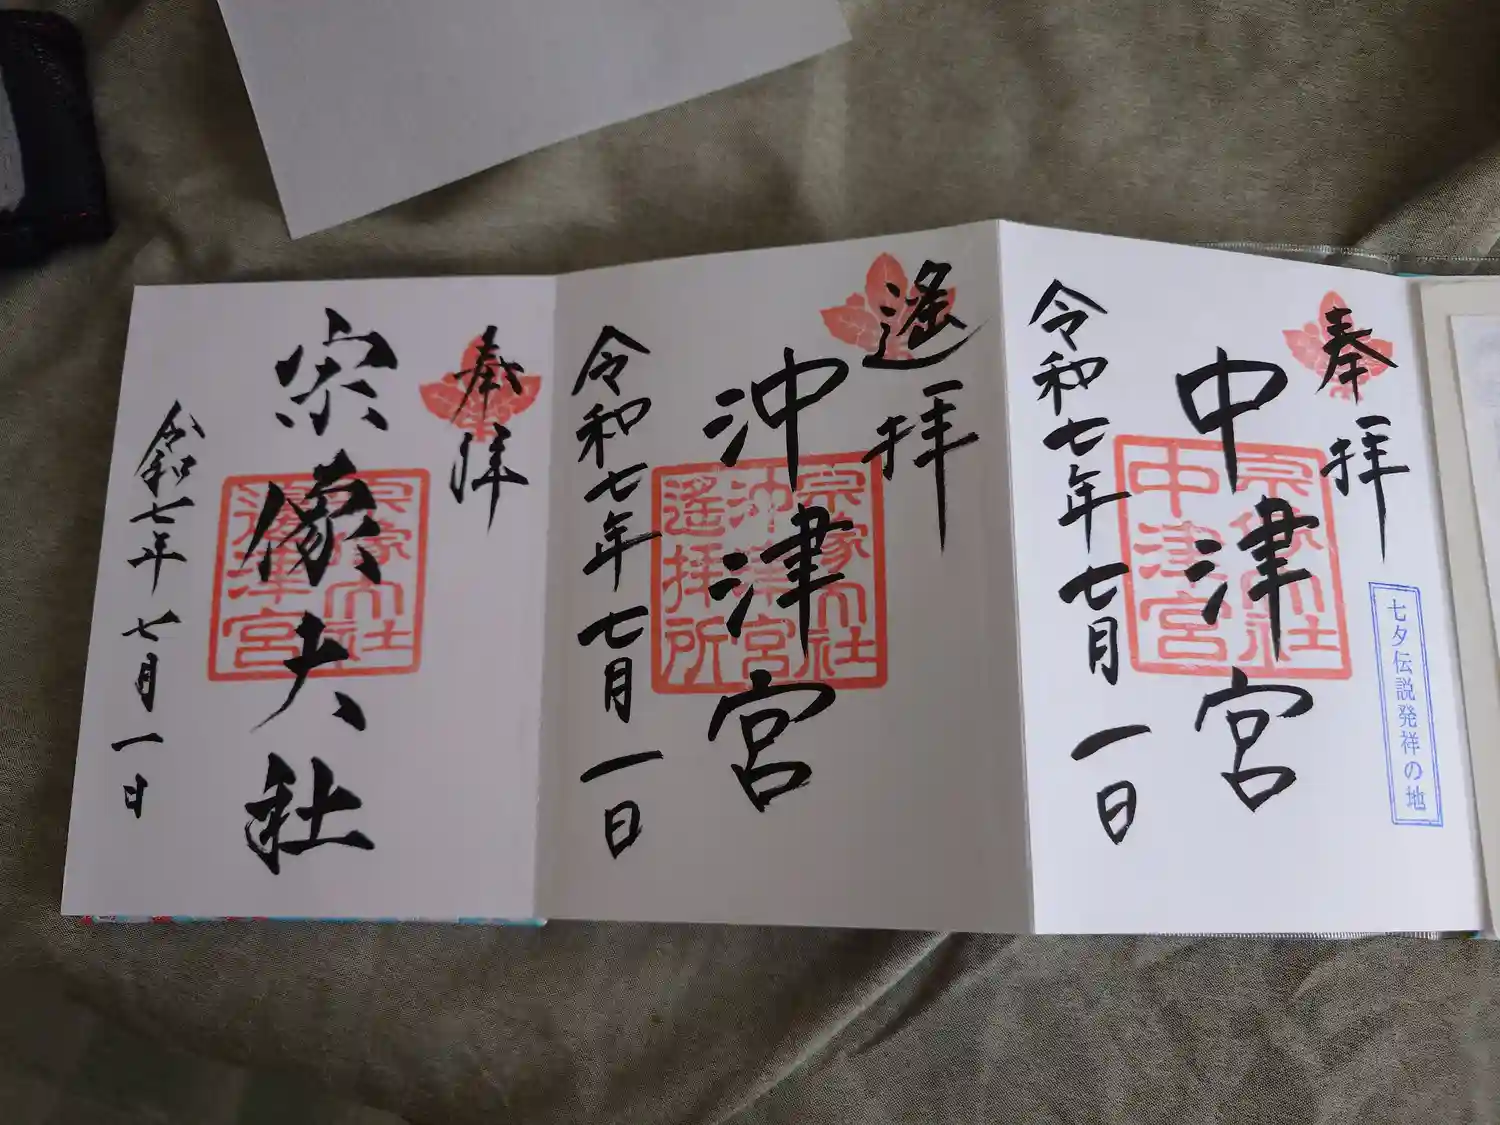 奉拝
中津宮
令和七年七月一日
宗像大社
中津宮
七夕伝説発祥の地
遙拝
沖津宮
令和七年七月一日
宗像大社
沖津宮
遙拝所
奉拝
宗像大社
令和七年七月一日
宗像大社
邊津宮